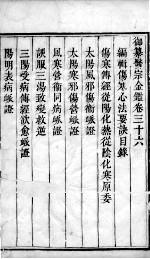 御纂醫宗金鑑卷三十六
編輯傷寒心法要訣目錄
傷寒傳經從陽化熱從陰化寒原委
太陽風邪傷衛脈證
太陽寒邪傷營脈證
風寒營衛同病脈證
誤服三湯致變救逆
三陽受病傳經欲愈脈證
陽明表病脈證